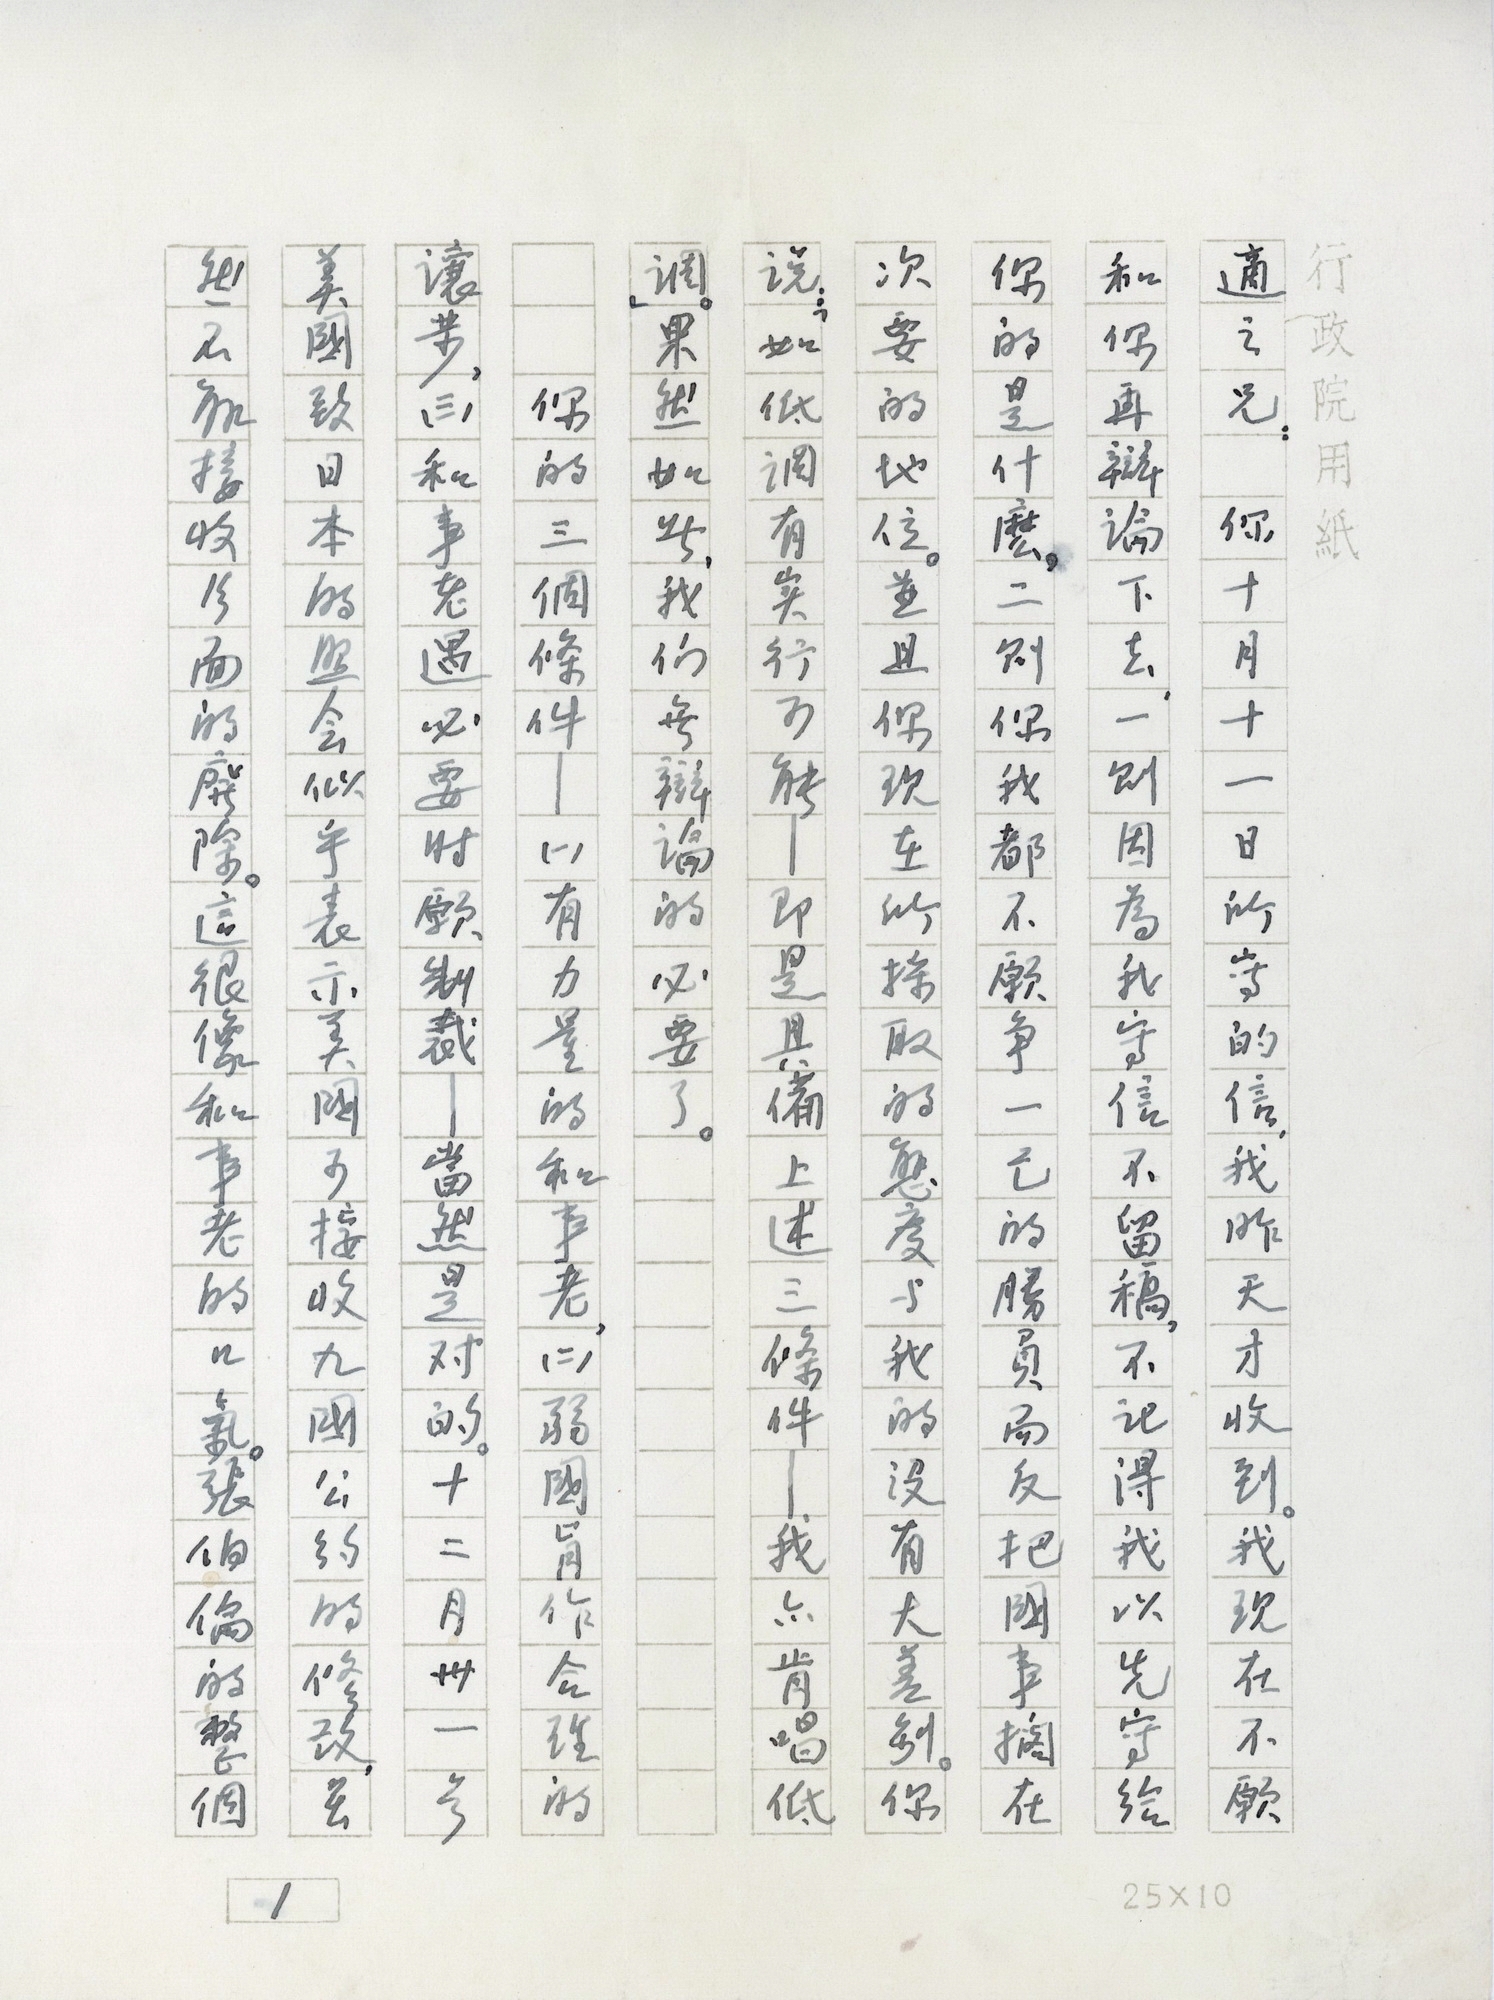 行政院用紙
適之兄：　你十月十一日所寫的信，我昨天才收到。我現在不願
和你再辯論下去，一則因為我寫信不留稿，不記得我以先寫給
你的是什麼，二則你我都不願爭一己的勝負而反把國事擱在
次要的地位。並且你現在所採取的態度与我的沒有大差別。你
说：「如低调有實行可能—即是具備上述三條件—我亦肯唱低
调。」果然如此，我們無辯論的必要了。
你的三個條件—(一)有力量的和事老，(二)弱國肯作合理的
讓步，(三)和事老遇必要时願制裁—當然是对的。十二月卅一号
美國致日本的照会似乎表示美國可接收九國公約的修改，雖
然不能接收片面的廢除。這很像和事老的口氣。張伯倫的整個
1
25X10